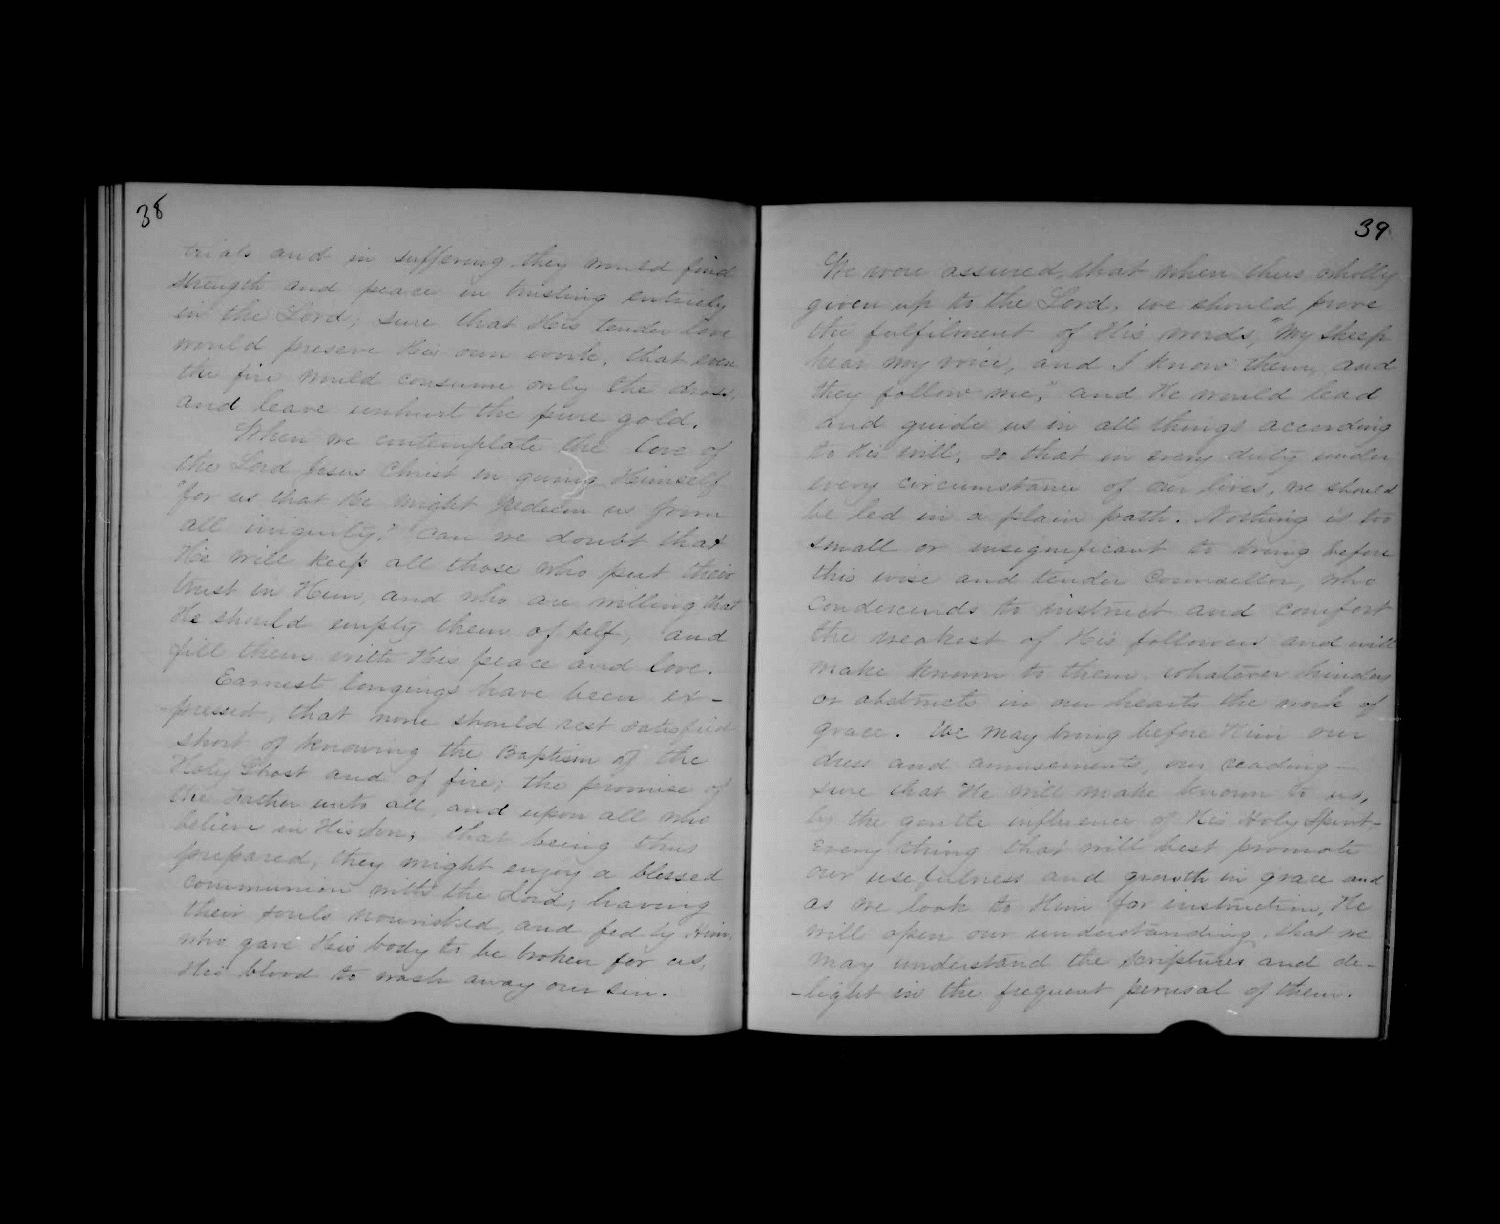 38
trials and in suffering they would find
strength and peace in trusting entirely
in the Lord; sure that His tender love
would preserve His own work, that even
the fire would consume only the dross,
and leave unhurt the pure gold.
When we contemplate the love of
the Lord Jesus Christ in giving Himself
"for us that He might redeem us from
all iniquity," can we doubt that
He will keep all those who put their
trust in Him, and who are willing that
He should empty them of self, and
fill them with His peace and love.
Earnest longings have been ex-
-pressed, that none should rest satisfied
short of knowing the Baptism of the
Holy Ghost and of fire; the promise of
the Father unto all, and upon all who
believe in His Son; that being thus
prepared, they might enjoy a blessed
communion with the Lord, having
their souls nourished, and fed by Him,
who gave His body to be broken for us,
His blood to wash away our sin.
39
We were assured, that when thus wholly
given up to the Lord, we should prove
the fulfilment of His words, "My sheep
hear my voice, and I know them, and
they follow me," and He would lead
and guide us in all things according
to His will, so that in every duty under
every circumstance of our lives, we should
be led in a plain path. Nothing is too
small or insignificant to bring before
this wise and tender Counsellor, who
condescends to instruct and comfort
the weakest of His followers and will
make known to them whatever hinders
or obstructs in our hearts the work of
grace. We may bring before Him our
dress and amusements, our reading—
sure that He will make known to us,
by the gentle influence of His Holy Spirit—
every thing that will best promote
our usefulness and growth in grace and
as we look to Him for instruction, He
will open our understanding, that we
may understand the Scriptures and de-
-light in the frequent perusal of them.